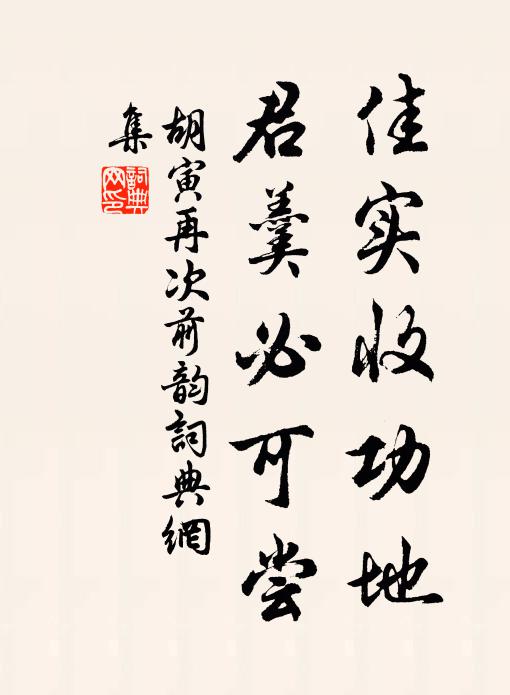 佳实收功地
君羹必可尝
胡寅再次前韵詞典網
集
詞典网印